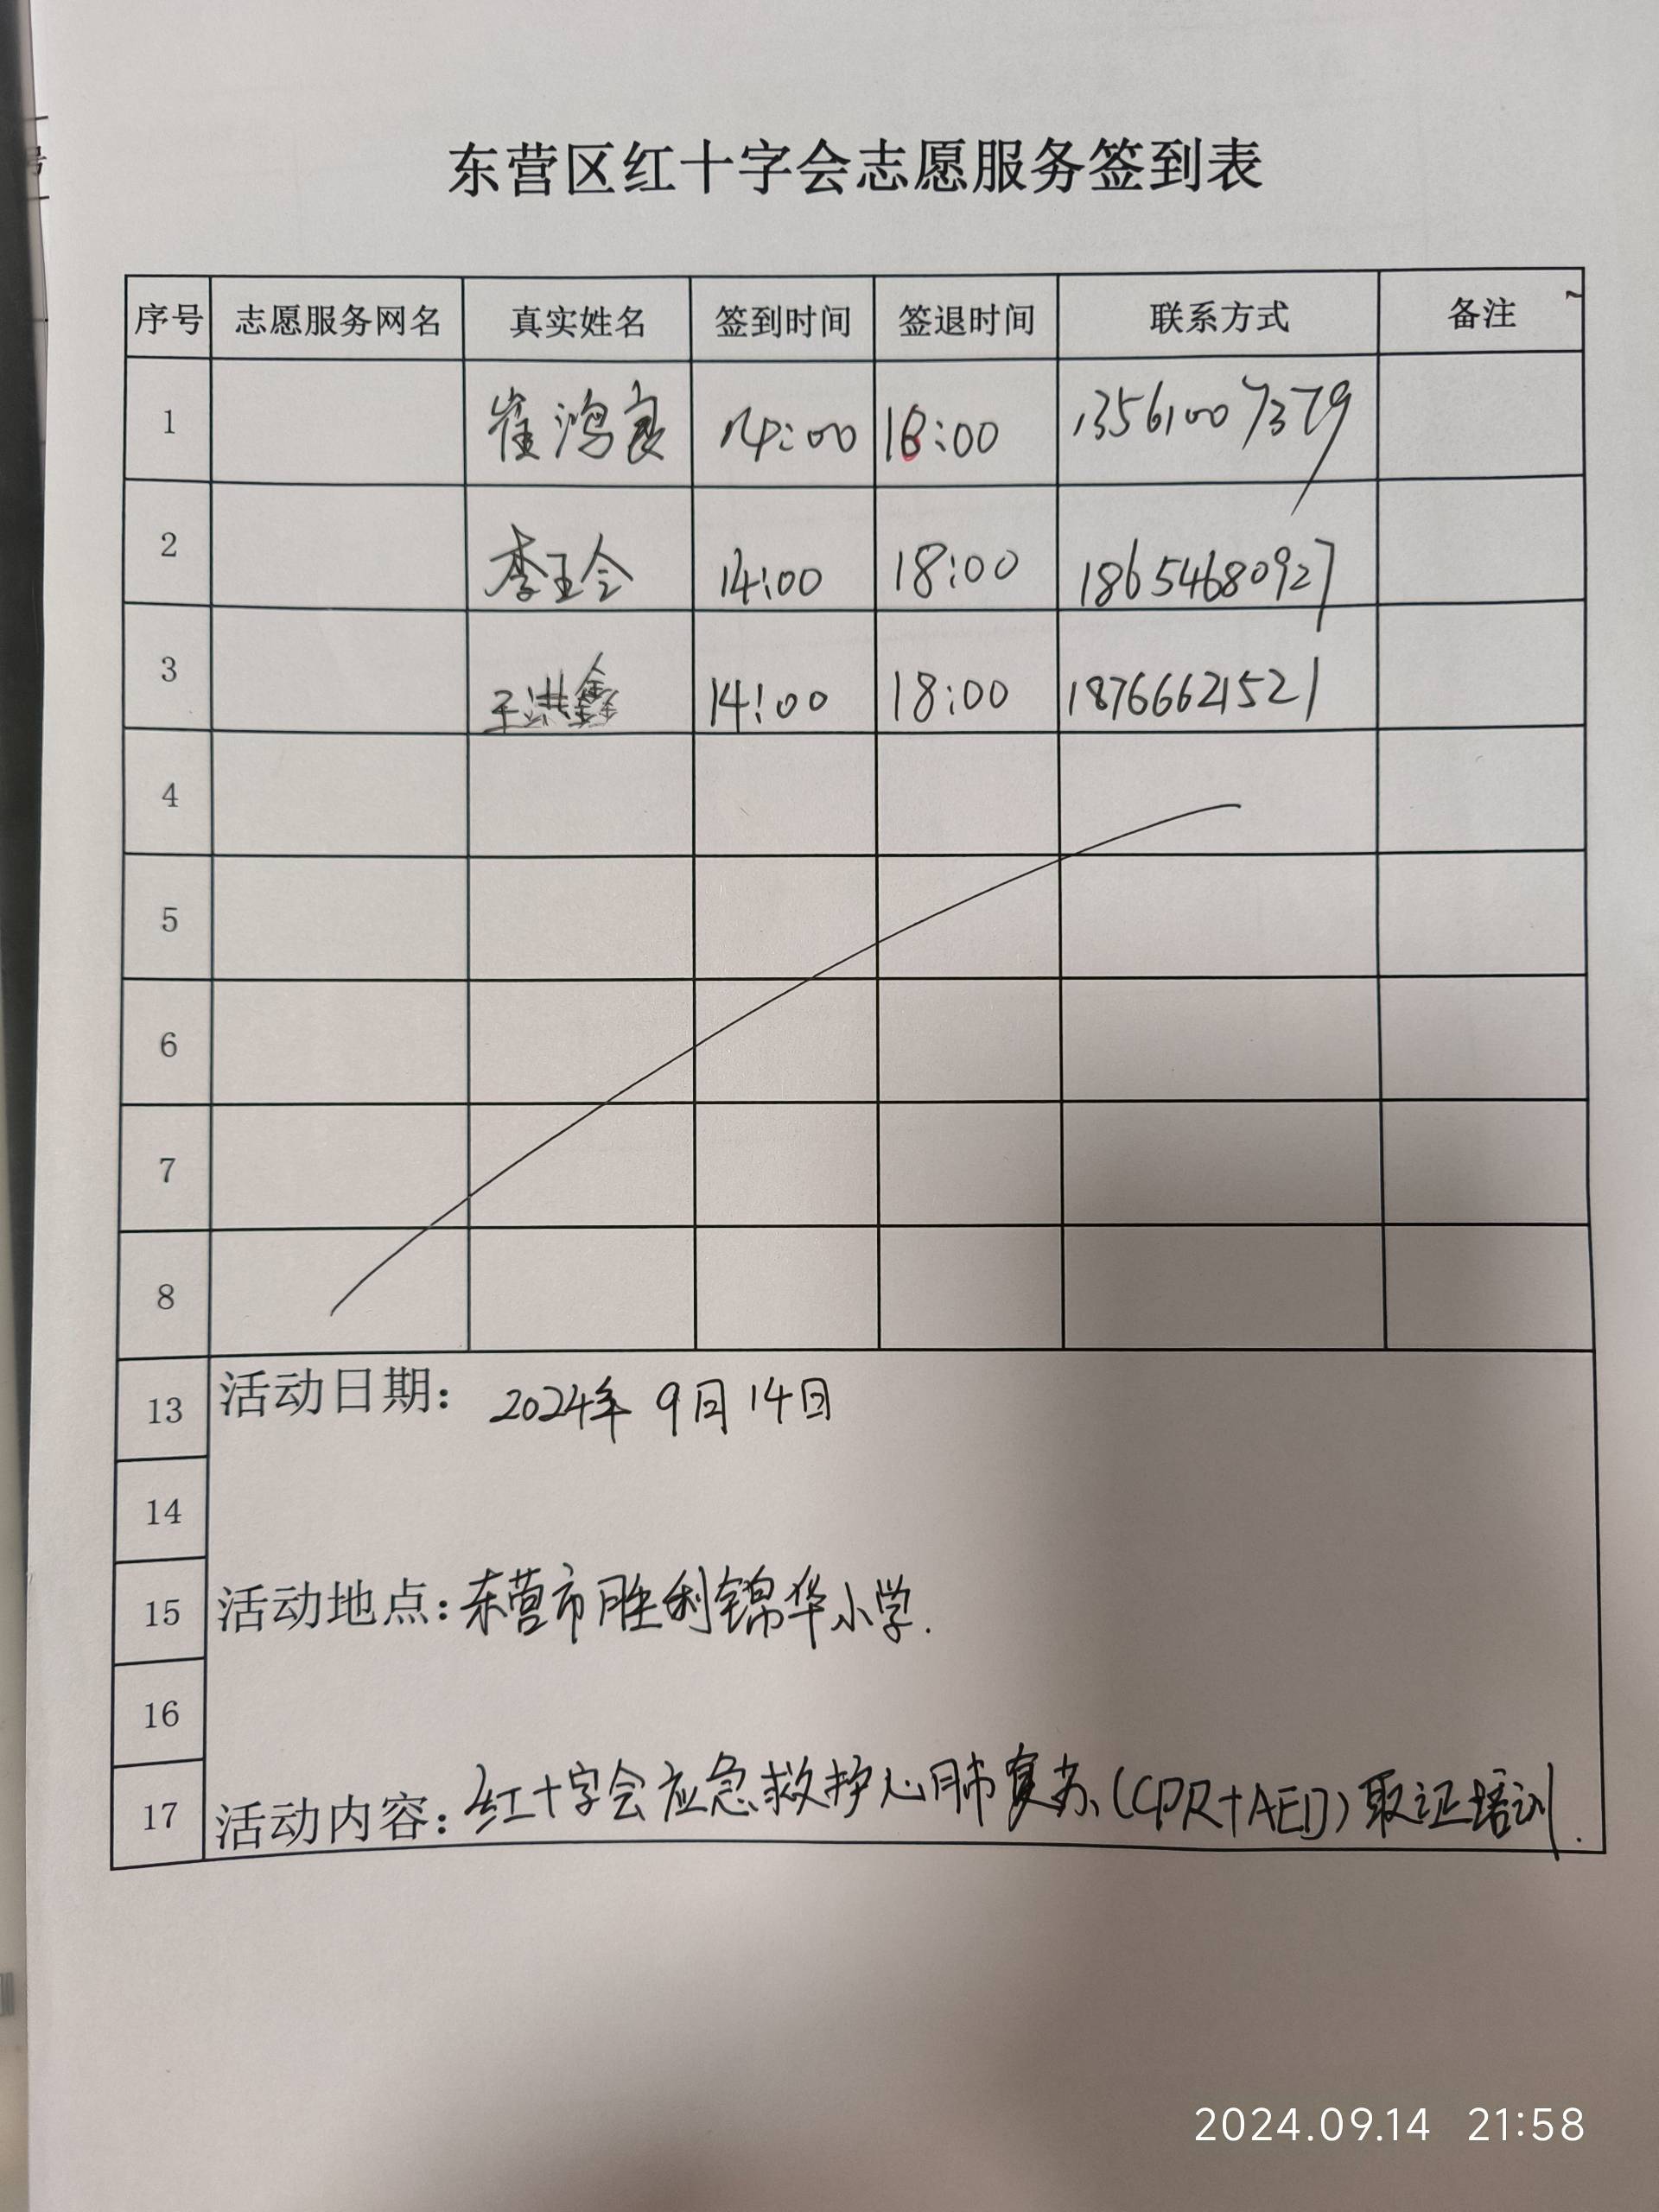 号
东营区红十字会志愿服务签到表
序号 志愿服务网名 真实姓名 签到时间 签退时间 联系方式 备注
1 崔鸿良 14:00 18:00 13561007379
2 李玉令 14:00 18:00 18654680927
3 王洪鑫 14:00 18:00 18766621521
4
5
6
7
8
13 活动日期: 2024年 9月 14日
14
15 活动地点: 东营市胜利锦华小学.
16
17 活动内容: 红十字会应急救护心肺复苏(CPR+AED)取证培训.
2024.09.14 21:58